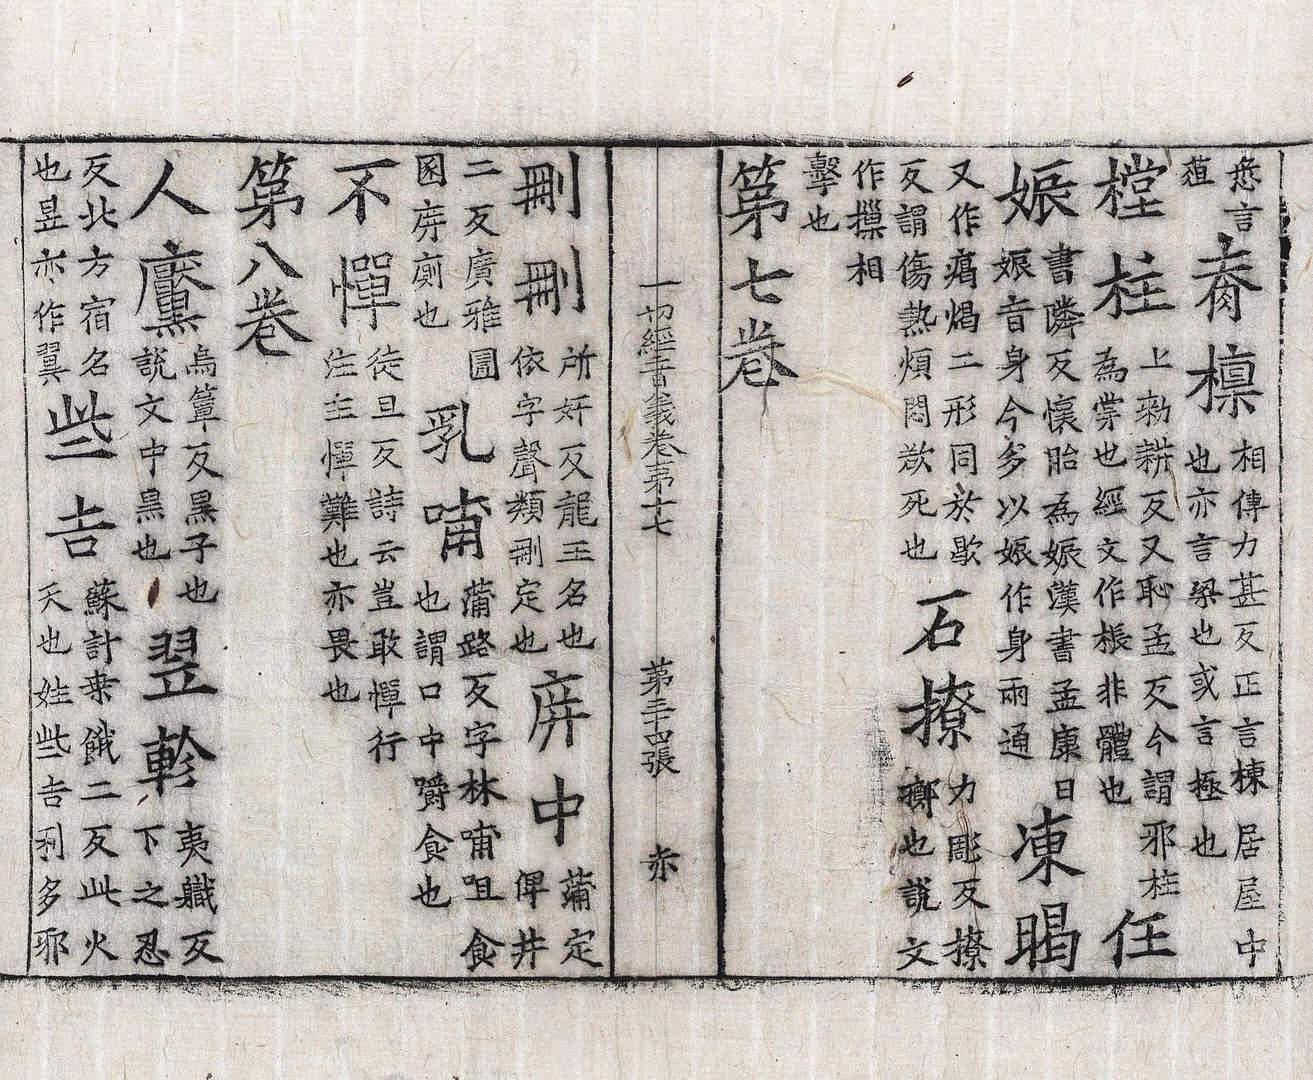 悆言
葅
脊檁
相傳力甚反正言棟居屋中
也亦言梁也或言極也
樘柱
上勑耕反又恥孟反今謂邪柱
為棠也經文作棖非體也
任
娠
書隣反懷胎為娠漢書孟康曰
娠音身今多以娠作身兩通
凍暍
又作瘑煬二形同於歇
反謂傷熱煩悶欲死也
石撩
力彫反撩
擲也說文
作摷相
擊也
第七卷
一切經音義卷苐十七
苐三十四張
赤
刪刪
所姧反龍王名也
依字聲類刪定也
庰中
蒲定
俾井
二反廣雅圊
圂庰廁也
乳哺
蒲路反字林哺咀食
也謂口中嚼食也
不憚
徒旦反詩云豈敢憚行
注主憚難也亦畏也
第八卷
人黡
烏簟反黑子也
說文中黑也
翌軫
夷職反
下之忍
反北方宿名
也昱亦作翼
些吉
蘇計桒餓二反此火
天也姓些吉利多邪